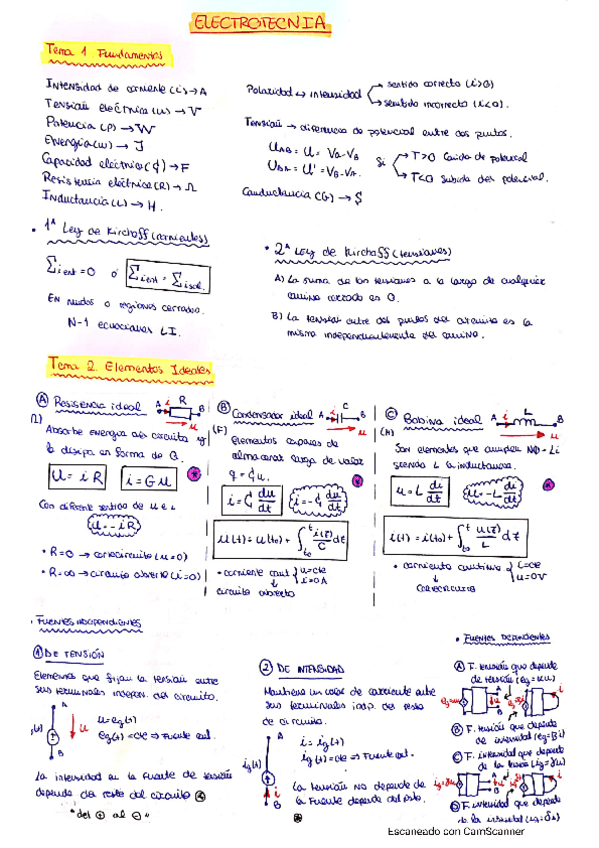 ELECTROTECNIA
Tema 1 Fundamentos
Intensidad de corriente (i) → A
Tensión eléctrica (u) → V
Potencia (P) → W
Energía (w) → J
Capacidad eléctrica (C) → F
Resistencia eléctrica (R) → Ω
Inductancia (L) → H.
Polaridad ↔ intensidad
sentido correcto (i>0)
sentido incorrecto (i<0).
Tensión → diferencia de potencial entre dos puntos.
UAB = U = VA-VB
UBA = U' = VB-VA.
Si
T>0 Caida de potencial
T<0 Subida del potencial.
Conductancia (G) → S
• 1ª Ley de Kirchoff (corrientes)
Σient = 0 ó Σient = Σisal.
En nudos o regiones cerradas.
N-1 ecuaciones LI.
• 2ª Ley de Kirchoff (tensiones)
A) La suma de las tensiones a lo largo de cualquier
camino cerrado es 0.
B) La tensión entre dos puntos del circuito es la
misma independientemente del camino.
Tema 2. Elementos Ideales
A Resistencia ideal A i R B
u
(Ω)
Absorbe energía del circuito y
la disipa en forma de Q.
U = i R i = G u
Con diferente sentido de u e i
u = - i R
• R=0 → cortocircuito (u=0)
• R=∞ → circuito abierto (i=0)
B Condensador ideal A i C B
u
(F)
Elementos capaces de
almacenar carga de valor
q = C u.
i = C du/dt i = -C du/dt
u(t) = u(t0) + ∫t0 t i(τ)/C dτ
• corriente cont. u=cte
i=0A
circuito abierto
C Bobina ideal A i L B
u
(H)
Son elementos que cumplen Nϕ = Li
siendo L la inductancia.
u = L di/dt u = -L di/dt
i(t) = i(t0) + ∫t0 t u(τ)/L dτ
• corriente continua i=cte
u=0V
Cortocircuito
• FUENTES INDEPENDIENTES
1 DE TENSIÓN
Elementos que fijan la tensión entre
sus terminales indepen. del circuito.
A
u
B
u=eg(t)
eg(t)=cte ⇒ Fuente cont.
La intensidad en la fuente de tensión
depende del resto del circuito
"del ⊕ al ⊖"
2 DE INTENSIDAD
Mantiene un valor de corriente entre
sus terminales indp. del resto
de circuito.
A
ig(t)
i
B
i = ig(t)
ig(t)=cte ⇒ Fuente cont.
La tensión NO depende de
la Fuente depende del resto.
• FUENTES DEPENDIENTES
A F. tensión que depende
de tensión (eg=αu)
B F. tensión que depende
de intensidad (eg=βi)
C F. intensidad que depende
de la tensión (ig=γu)
D F. intensidad que depende
de la intensidad (ig=δi)
Escaneado con CamScanner